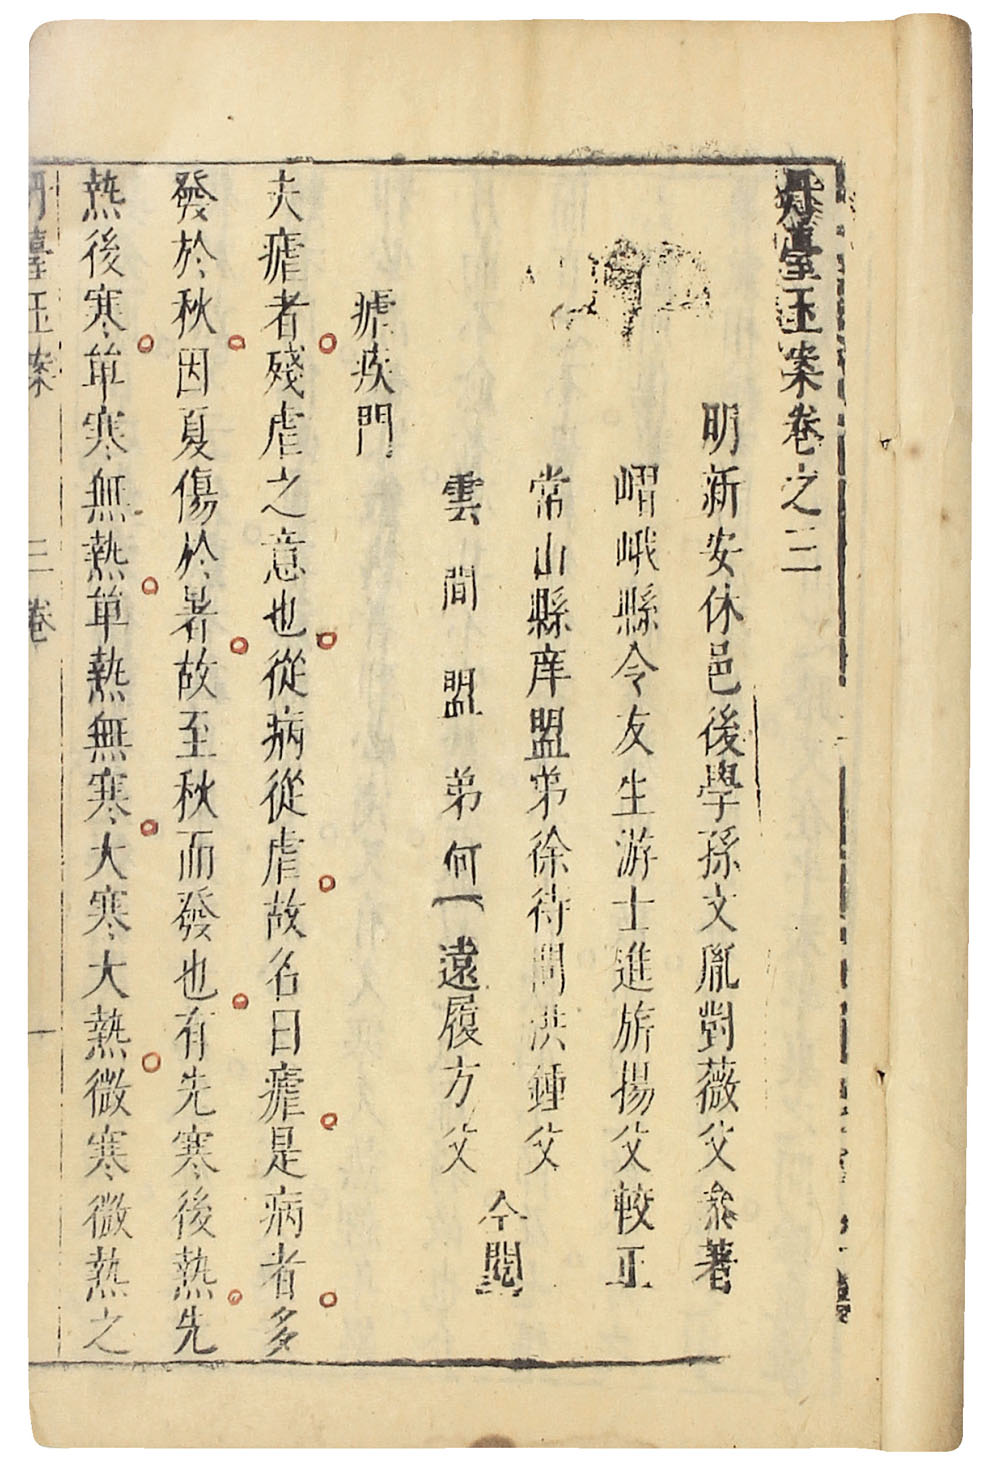 丹臺玉案卷之三
明新安休邑後學孫文胤對薇父叅著
嶍峨縣令友生游士進旂揚父較正
常山縣庠盟弟徐待問洪鍾父
雲間盟弟何 遠履方父
仝閱
瘧疾門
夫瘧者殘虐之意也從病從虐故名曰瘧是病者多
發於秋因夏傷於暑故至秋而發也有先寒後熱先
熱後寒單寒無熱單熱無寒大寒大熱微寒微熱之
丹臺玉案 三卷 一